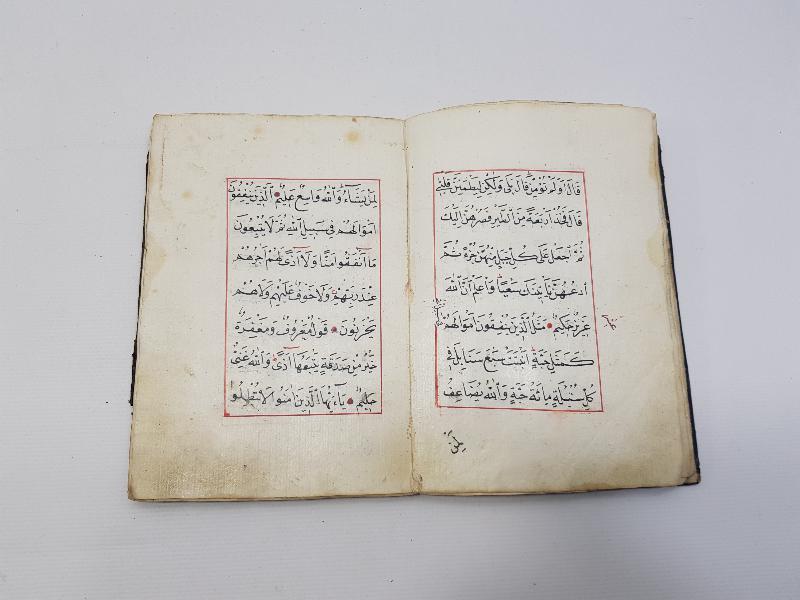 قَالَ اَوَلَمْ تُؤْمِنْ قَالَ بَلٰى وَلٰكِنْ لِيَطْمَئِنَّ قَلْبٖى
قَالَ فَخُذْ اَرْبَعَةً مِنَ الطَّيْرِ فَصُرْهُنَّ اِلَيْكَ
ثُمَّ اجْعَلْ عَلٰى كُلِّ جَبَلٍ مِنْهُنَّ جُزْءًا ثُمَّ
ادْعُهُنَّ يَاْتٖينَكَ سَعْيًا وَاعْلَمْ اَنَّ اللّٰهَ
عَزٖيزٌ حَكٖيمٌ مَثَلُ الَّذٖينَ يُنْفِقُونَ اَمْوَالَهُمْ
كَمَثَلِ حَبَّةٍ اَنْبَتَتْ سَبْعَ سَنَابِلَ فٖى
كُلِّ سُنْبُلَةٍ مِائَةُ حَبَّةٍ وَاللّٰهُ يُضَاعِفُ
لِمَنْ
لِمَنْ يَشَٓاءُ وَاللّٰهُ وَاسِعٌ عَلٖيمٌ اَلَّذٖينَ يُنْفِقُونَ
اَمْوَالَهُمْ فٖى سَبٖيلِ اللّٰهِ ثُمَّ لَا يُتْبِعُونَ
مَٓا اَنْفَقُوا مَنًّا وَلَٓا اَذًى لَهُمْ اَجْرُهُمْ
عِنْدَ رَبِّهِمْ وَلَا خَوْفٌ عَلَيْهِمْ وَلَا هُمْ
يَحْزَنُونَ قَوْلٌ مَعْرُوفٌ وَمَغْفِرَةٌ
خَيْرٌ مِنْ صَدَقَةٍ يَتْبَعُهَٓا اَذًى وَاللّٰهُ غَنِىٌّ
حَلٖيمٌ يَٓا اَيُّهَا الَّذٖينَ اٰمَنُوا لَا تُبْطِلُوا